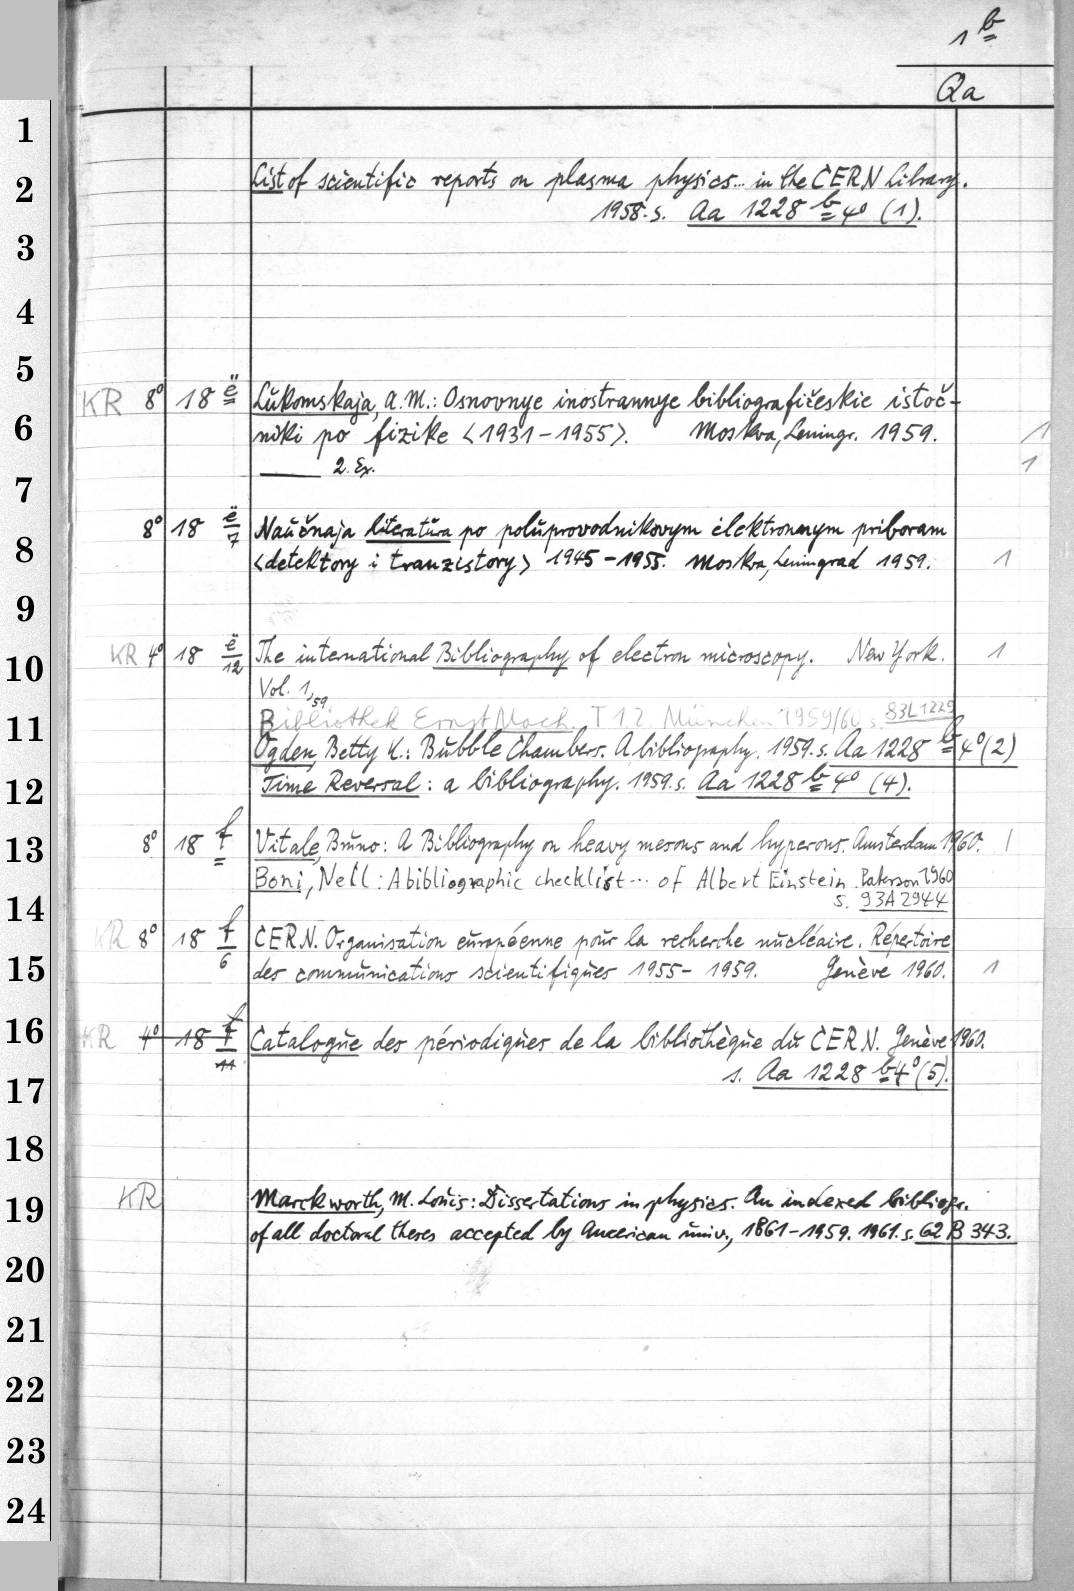 1 b
Qa
1
2
3
4
5
6
7
8
9
10
11
12
13
14
15
16
17
18
19
20
21
22
23
24
List of scientific reports on plasma physics... in the CERN Library.
1958. s. Aa 1228 b 4° (1).
KR 8° 18 ë Lukomskaja, A. M.: Osnovnye inostrannye bibliografičeskie istoč-
niki po fizike <1931-1955>. Moskva, Leningr. 1959. 1
—— 2. Ex. 1
8° 18 ë/7 Naučnaja literatura po poluprovodnikovym elektronnym priboram
<detektory i tranzistory> 1945-1955. Moskva, Leningrad 1959. 1
KR 4° 18 ë/12 The international Bibliography of electron microscopy. New York. 1
Vol. 1, 59
Bibliothek Ernst Mach. T 1.2. München 1959/60 s. 83L1229
Ogden, Betty K.: Bubble Chambers. A bibliography. 1959. s. Aa 1228 b 4° (2)
Time Reversal: a bibliography. 1959. s. Aa 1228 b 4° (4).
8° 18 f Vitale, Bruno: A Bibliography on heavy mesons and hyperons. Amsterdam 1960. 1
Boni, Nell: A bibliographic checklist... of Albert Einstein. Paterson 1960
s. 93A2944
KR 8° 18 f/6 CERN. Organisation européenne pour la recherche nucléaire. Répertoire
des communications scientifiques 1955-1959. Genève 1960. 1
KR 4° 18 f/11 Catalogue des périodiques de la bibliothèque du CERN. Genève 1960.
s. Aa 1228 b 4° (5).
KR Marckworth, M. Louis: Dissertations in physics. An indexed bibliogr.
of all doctoral theses accepted by American univ., 1861-1959. 1961. s. 62 B 343.